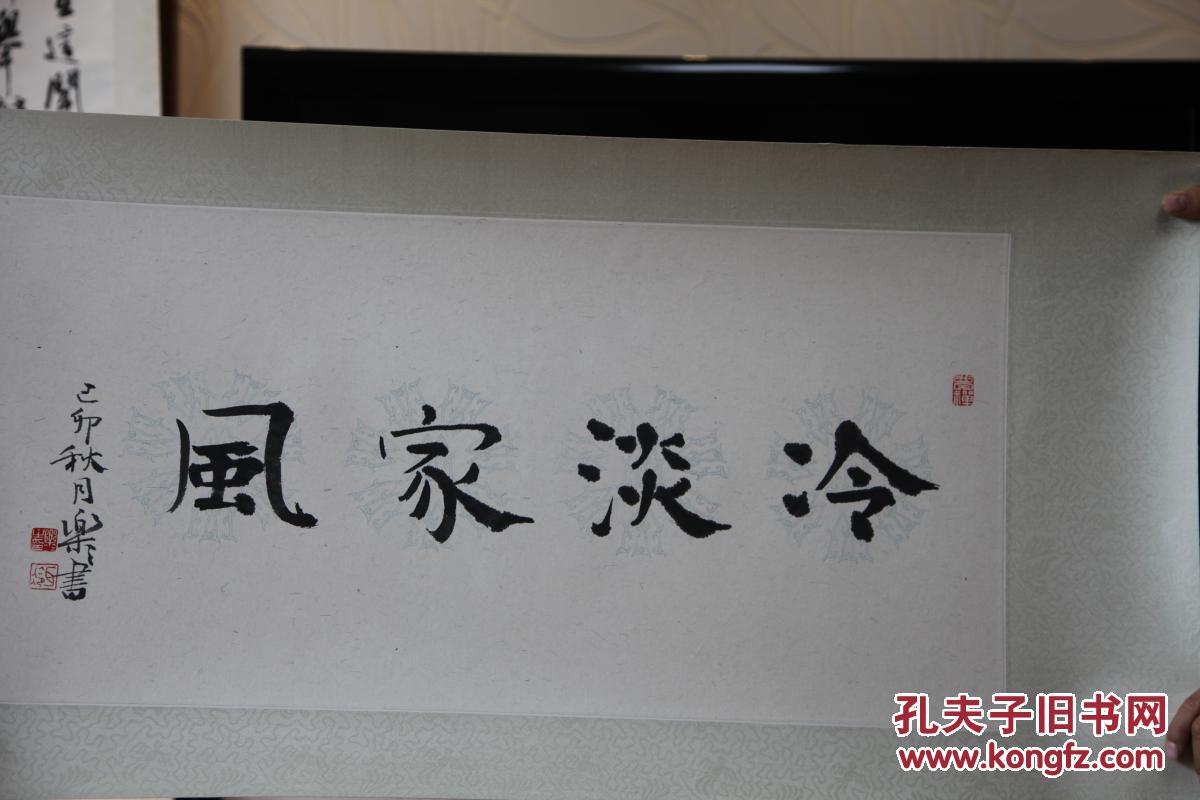 冷淡家風
己卯秋月樂樂書
孔夫子旧书网
www.kongfz.com